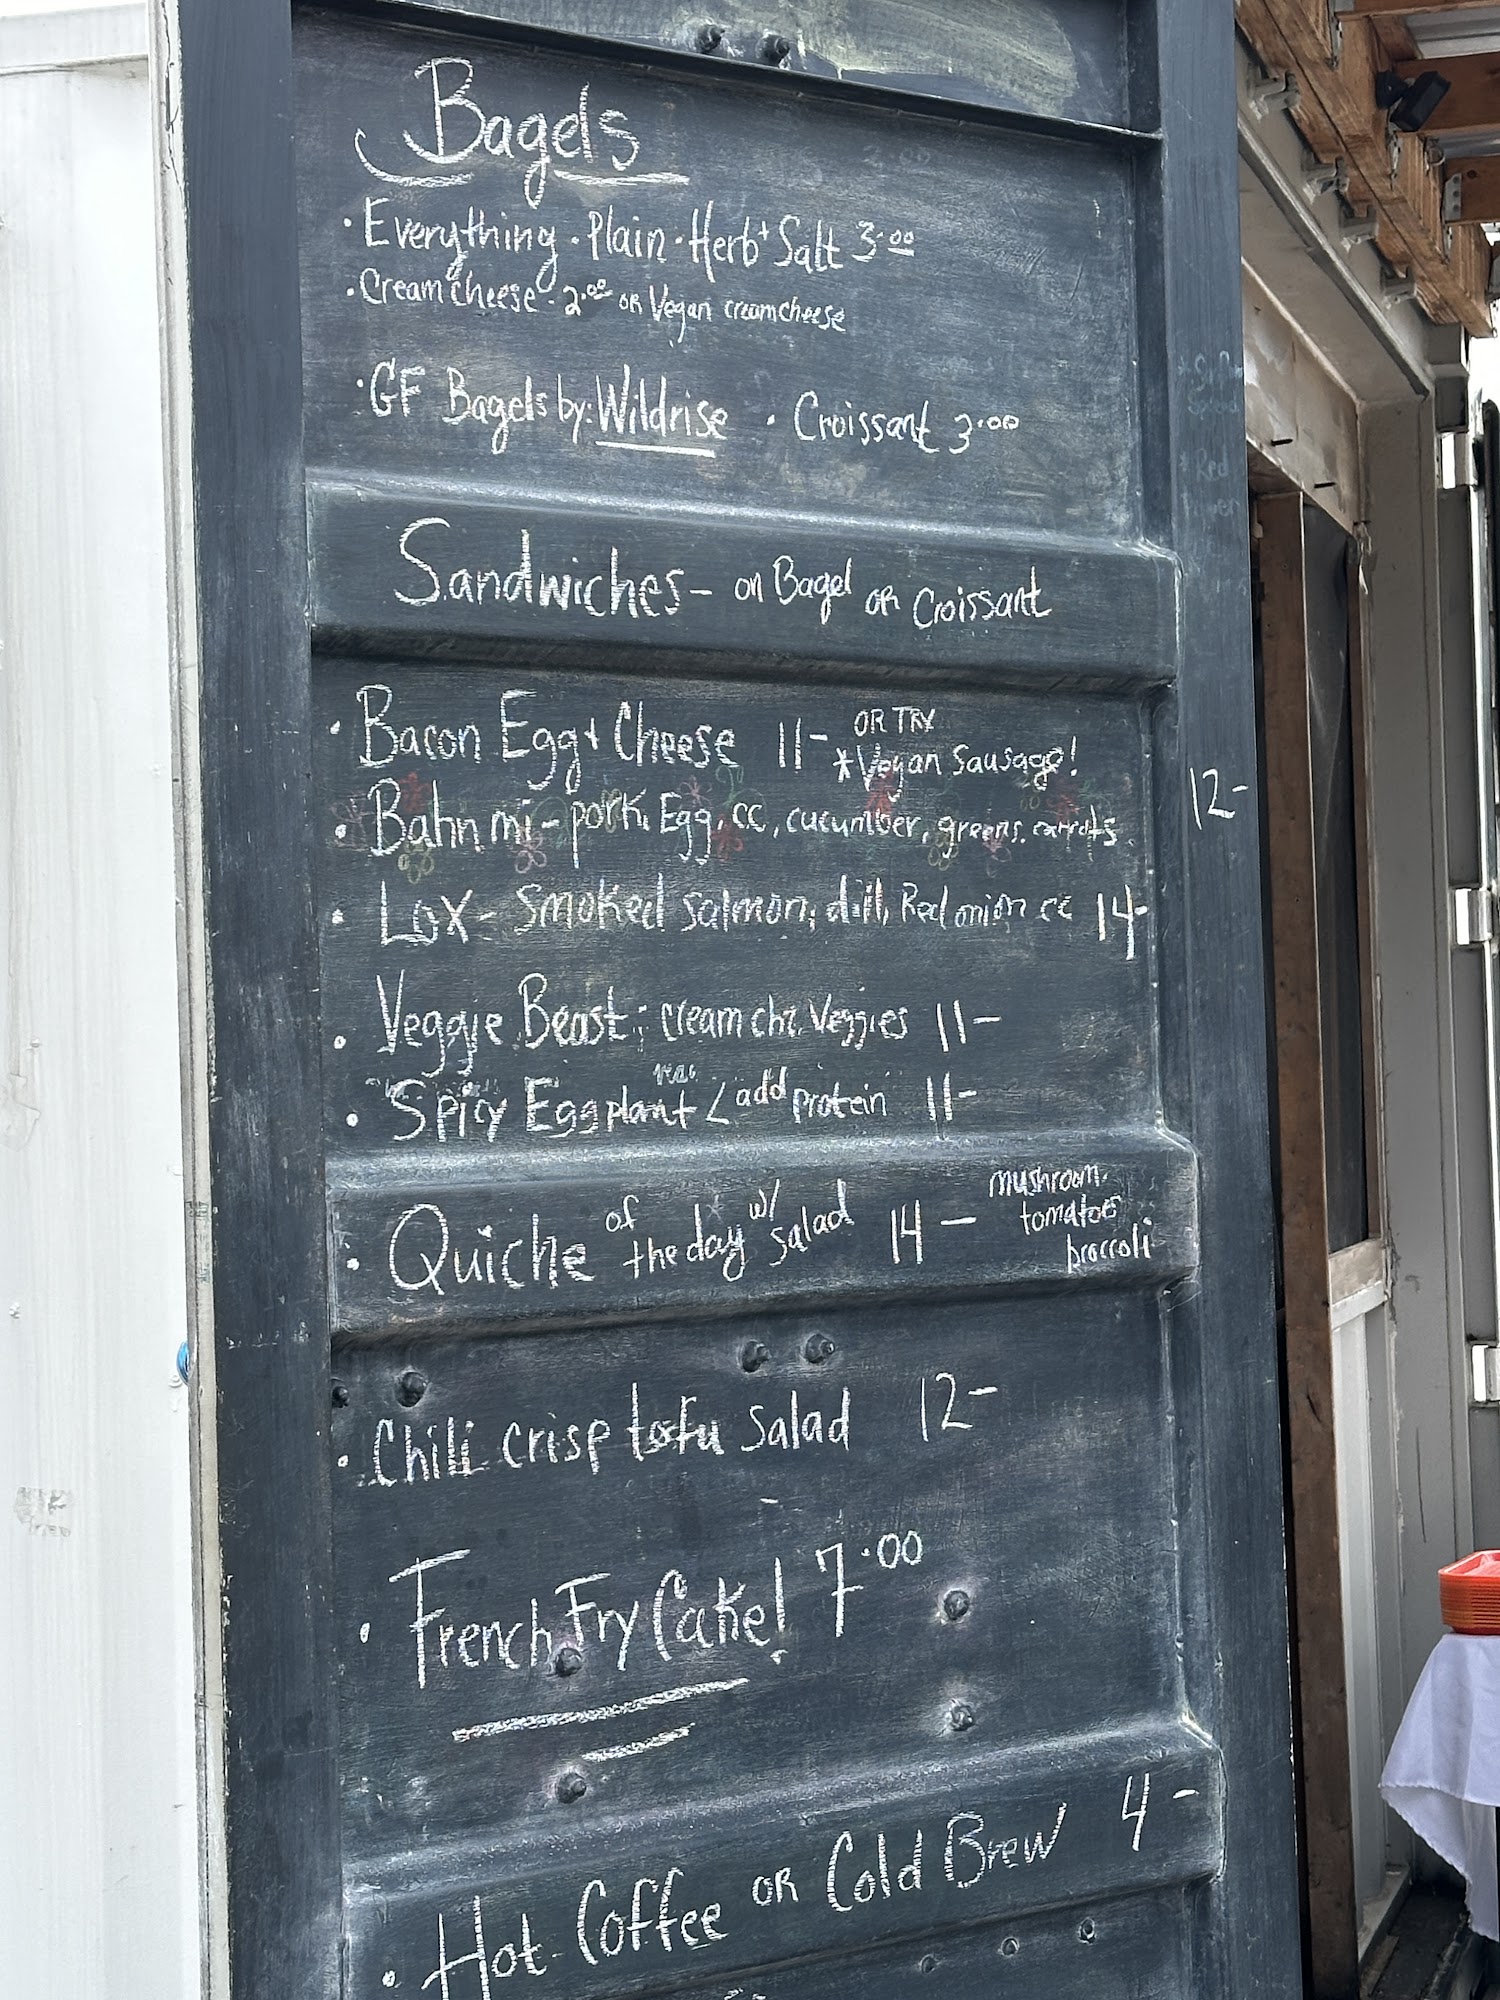 Bagels
• Everything • Plain • Herb + Salt 3.00
• Cream cheese - 2.00 OR Vegan creamcheese
• GF Bagels by: Wildrise • Croissant 3.00
Sandwiches - on Bagel OR Croissant
• Bacon Egg + Cheese 11- OR TRY
*Vegan Sausage!
• Bahn mi - pork, Egg, cc, cucumber, greens, carrots 12-
• Lox - Smoked salmon, dill, Red onion cc 14-
• Veggie Beast; cream chz, Veggies 11-
• Spicy Eggplant < add protein 11-
• Quiche of the day w/ salad 14 - mushroom,
tomatoes
broccoli
• Chili crisp tofu salad 12-
• French Fry Cake! 7.00
• Hot Coffee OR Cold Brew 4-